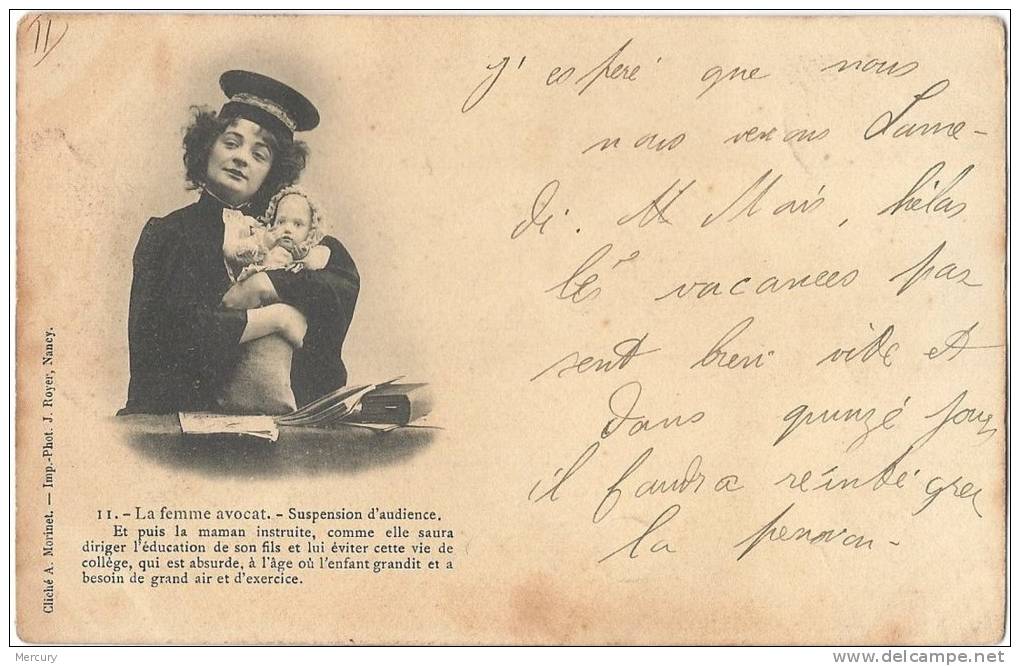 11
J'espéré que nous
nous verrons Same-
di. M Mais, hélas
lés vacances pas
sent bien vide et
dans quinzé jours
il faudra réintégrer
la
11. - La femme avocat. - Suspension d'audience.
Et puis la maman instruite, comme elle saura
diriger l'éducation de son fils et lui éviter cette vie de
collège, qui est absurde, à l'âge où l'enfant grandit et a
besoin de grand air et d'exercice.
Cliché A. Morinet. — Imp.-Phot. J. Royer, Nancy.
Mercury
www.delcampe.net